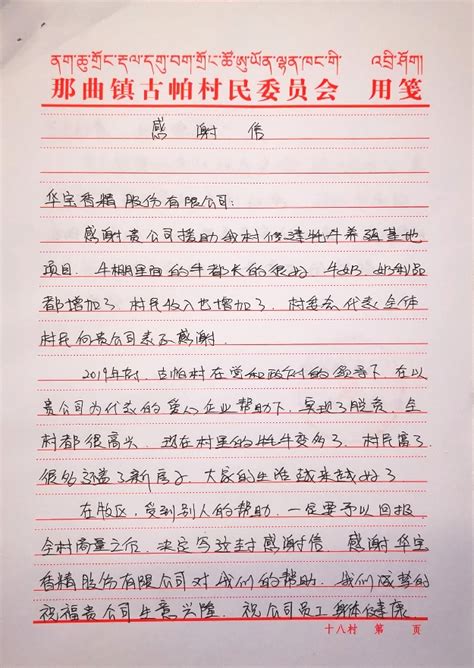 ནག་ཆུ་གྲོང་རྡལ་དགུ་བག་གྲོང་ཚོ་ཨུ་ཡོན་ལྷན་ཁང་གི་ འབྲི་ཤོག།
那曲镇古帕村民委员会 用笺
感谢信
华宝香精股份有限公司:
感谢贵公司援助我村修建牦牛养殖基地
项目. 牛棚里面的牛都长的很好. 牛奶. 奶制品
都增加了. 村民收入也增加了. 村委会代表全体
村民向贵公司表示感谢.
2019年初. 古帕村在党和政府的领导下 在以
贵公司为代表的爱心企业帮助下. 实现了脱贫. 全
村都很高兴. 现在村里的牦牛变多了. 村民富了.
很多还盖了新房子. 大家的生活越来越好了
在牧区. 受到别人的帮助. 一定要予以回报.
全村商量之后. 决定写这封感谢信. 感谢华宝
香精股份有限公司对我们的帮助. 我们诚挚的
祝福贵公司生意兴隆. 祝公司员工身体健康.
十八村 第 页